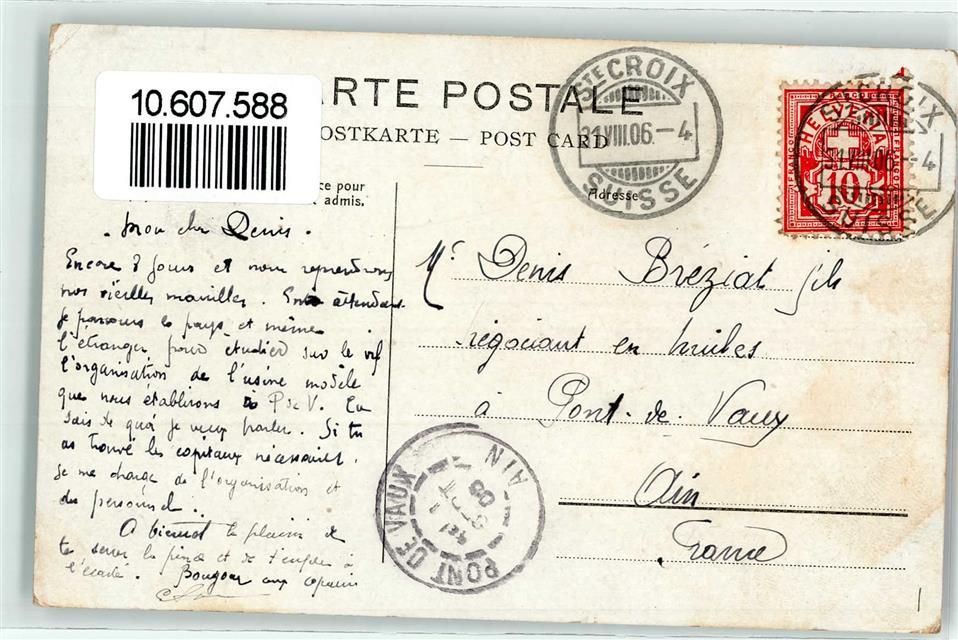 10.607.588
ARTE POSTALE
OSTKARTE — POST CARD
ce pour
admis.
Adresse
STE CROIX
31.VIII.06.–4
SUISSE
HELVETIA
FRANCO
FRANCO
10
STE CROIX
31.VIII.06.–4
SUISSE
Mon cher Denis.
Encore 8 jours et nous reprendrons
nos vieilles manilles. En attendant
je parcours le pays et même
l'étranger pour étudier sur le vif
l'organisation de l'usine modèle
que nous établirons à P de V. Tu
sais de quoi je veux parler. Si tu
as trouvé les capitaux nécessaires.
je me charge de l'organisation et
du personnel.
A bientot le plaisir de
te serrer la pince et de t'
l'écarté. Bonjour aux copains
Mr Denis Bréziat fils
négociant en huiles
à Pont-de-Vaux
Ain
France
PONT DE VAUX
AIN
1